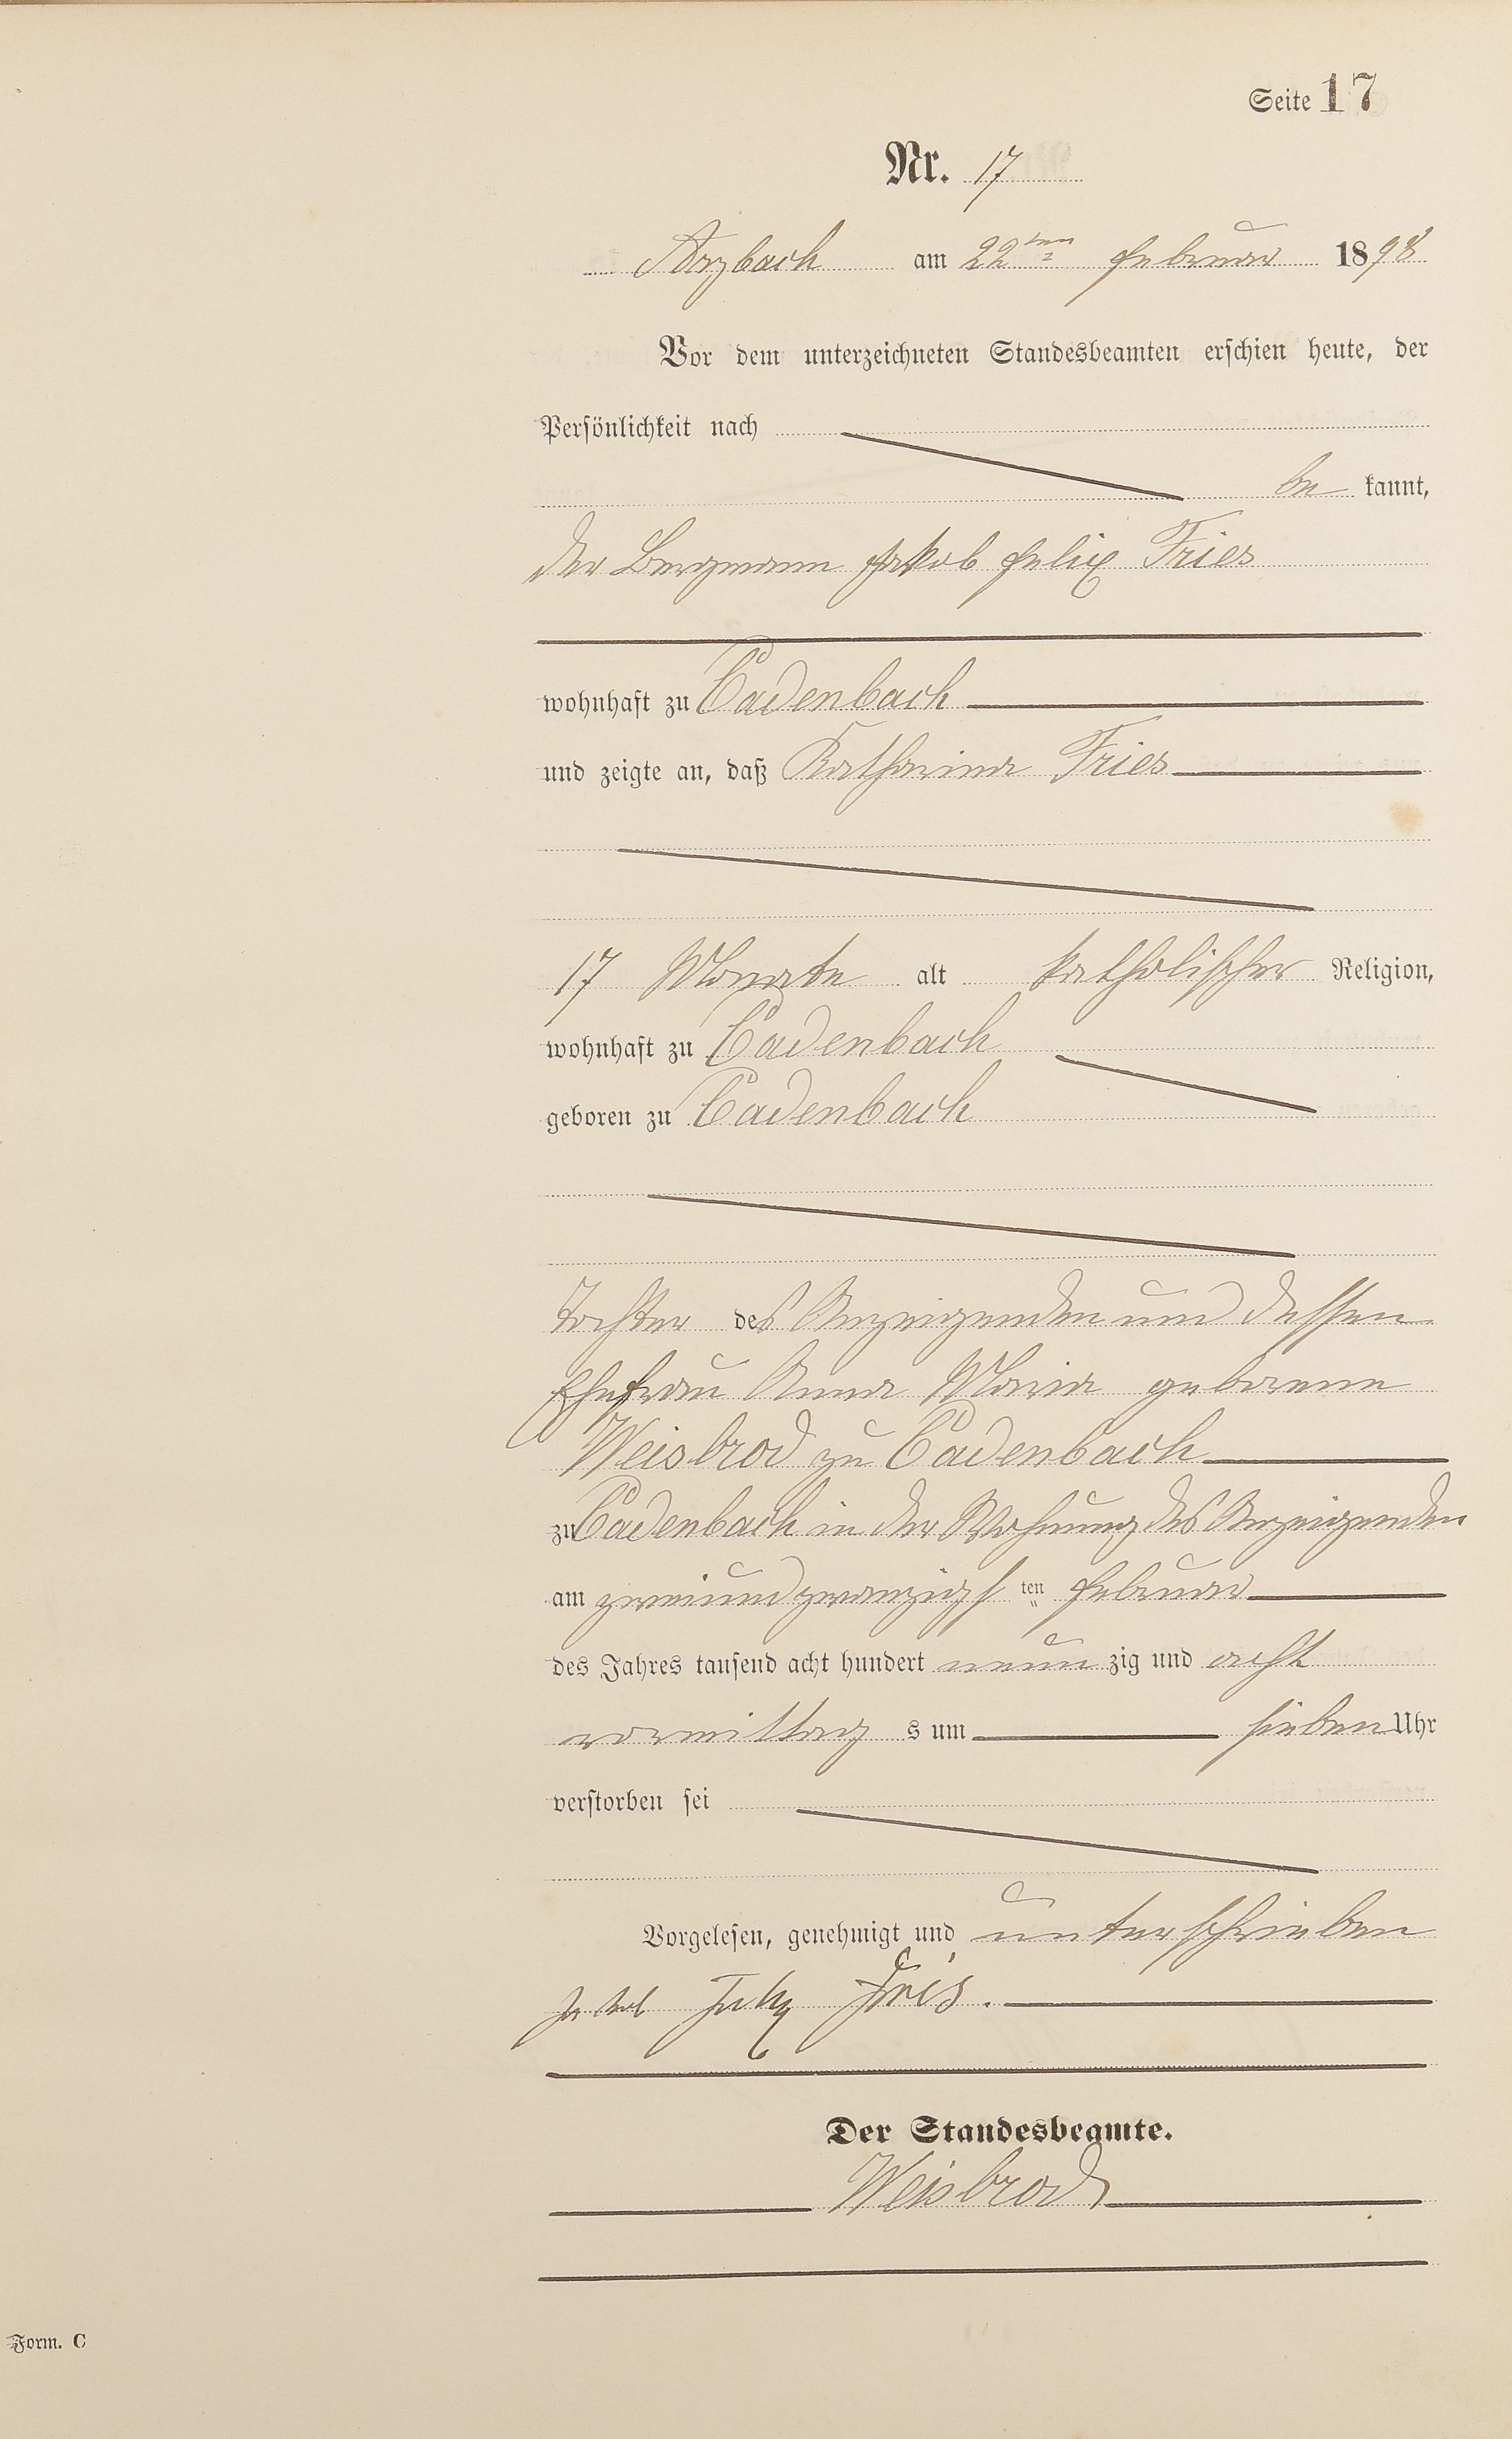 Seite 17
Nr. 17
Arzbach am 22ten Februar 1898
Vor dem unterzeichneten Standesbeamten erschien heute, der
Persönlichkeit nach
be kannt,
der Bergmann Jakob Felix Fries
wohnhaft zu Cadenbach
und zeigte an, daß Katharina Fries
17 Monate alt katholischer Religion,
wohnhaft zu Cadenbach
geboren zu Cadenbach
Tochter des Anzeigenden und dessen
Ehefrau Anna Maria geborene
Weisbrod zu Cadenbach
zu Cadenbach in der Wohnung des Anzeigenden
am zweiundzwanzigsten Februar
des Jahres tausend acht hundert neunzig und acht
vormittags um sieben Uhr
verstorben sei
Vorgelesen, genehmigt und unterschrieben
Jakob Felix Fries.
Der Standesbeamte.
Weisbrod
Form. C